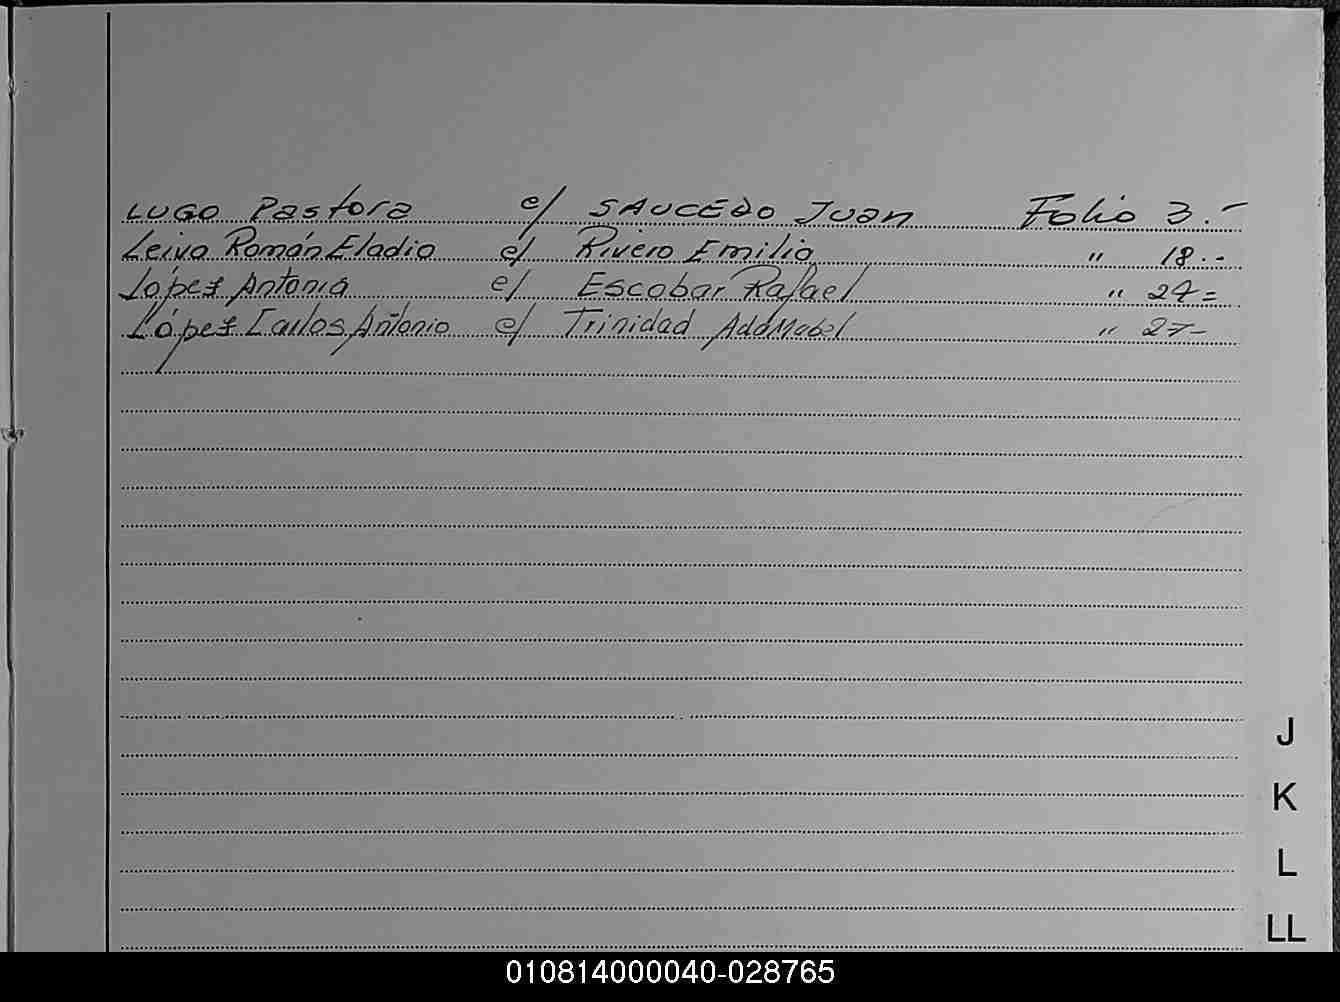 LUGO Pastora c/ SAUCEDO Juan Folio 3.-
Leiva Román Eladio c/ Rivero Emilio " 18.-
López Antonia c/ Escobar Rafael " 24=
López Carlos Antonio c/ Trinidad Ada Mabel " 27-
J
K
L
LL
010814000040-028765